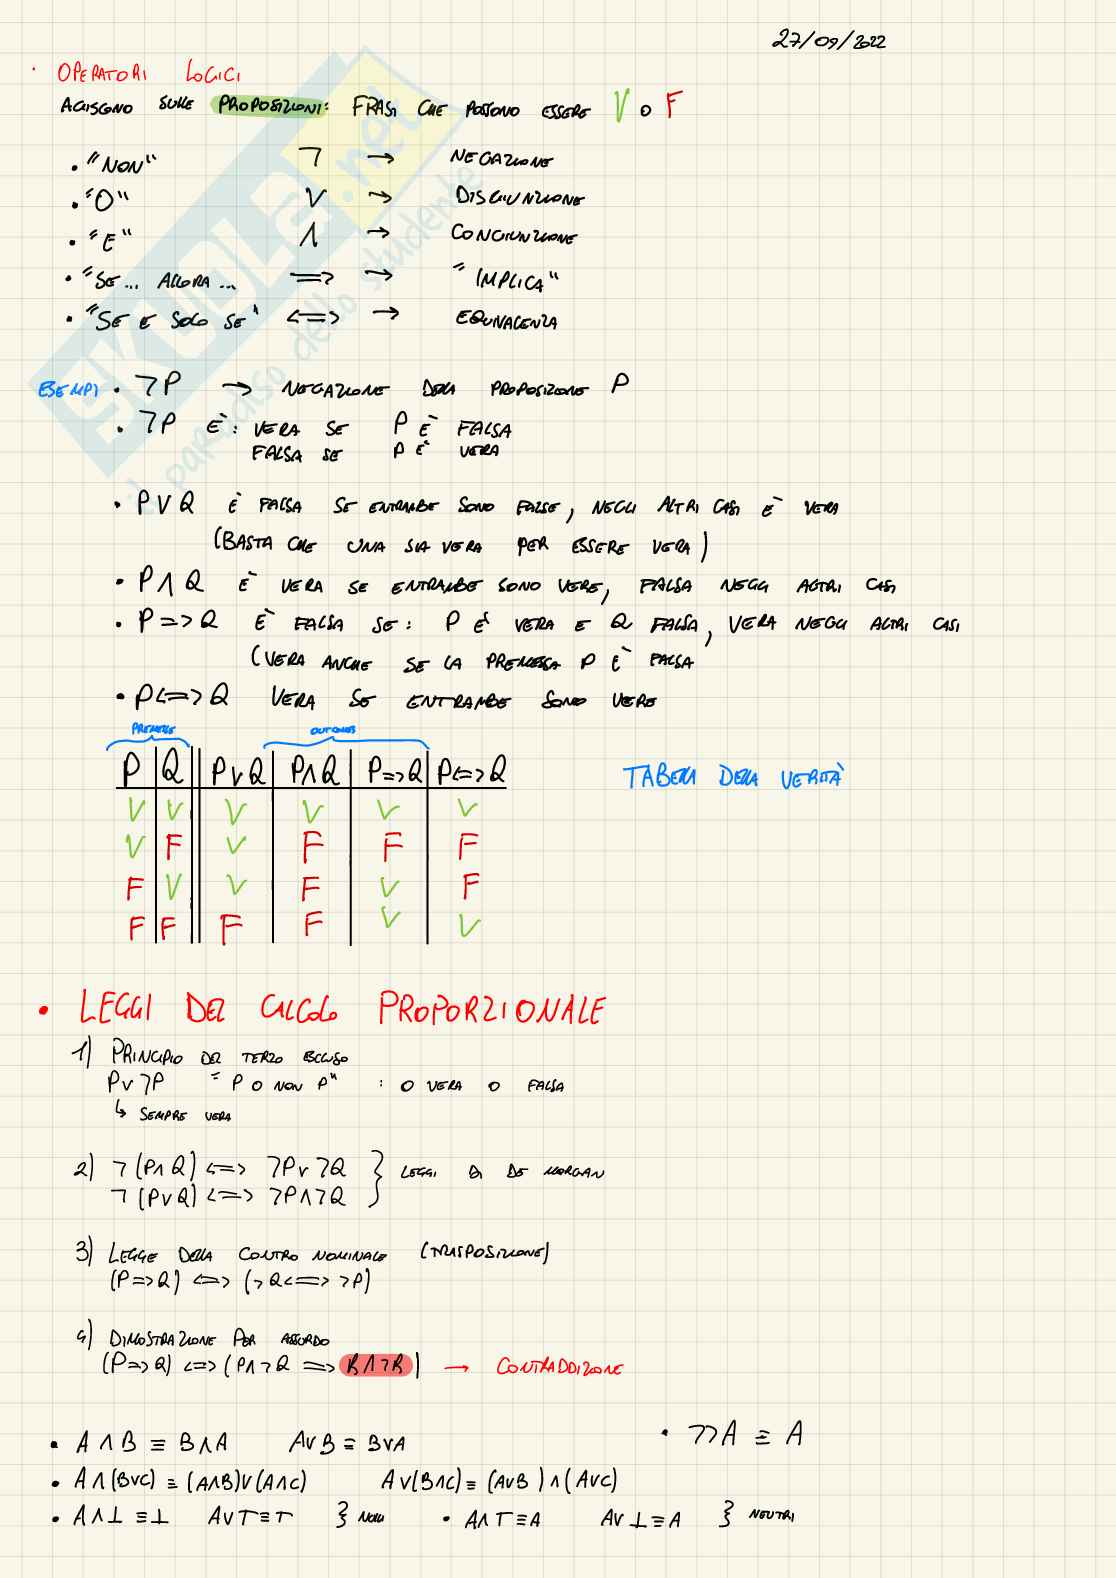 27/09/2022
· OPERATORI LOGICI
AGISCONO SULLE PROPOSIZIONI: FRASI CHE POSSONO ESSERE V O F
• "NON" ¬ → NEGAZIONE
• "O" ∨ → DISGIUNZIONE
• "E" ∧ → CONGIUNZIONE
• "SE... ALLORA... => → "IMPLICA"
• "SE E SOLO SE" <=> → EQUIVALENZA
ESEMPI • ¬P → NEGAZIONE DELLA PROPOSIZIONE P
• ¬P È: VERA SE P È FALSA
FALSA SE P È VERA
• P∨Q È FALSA SE ENTRAMBE SONO FALSE, NEGLI ALTRI CASI È VERA
(BASTA CHE UNA SIA VERA PER ESSERE VERA)
• P∧Q È VERA SE ENTRAMBE SONO VERE, FALSA NEGLI ALTRI CASI
• P=>Q È FALSA SE: P È VERA E Q FALSA, VERA NEGLI ALTRI CASI
(VERA ANCHE SE LA PREMESSA P È FALSA
• P<=>Q VERA SE ENTRAMBE SONO VERE
PREMESSE OUTCOMES
P Q P∨Q P∧Q P=>Q P<=>Q TABELLA DELLA VERITÀ
V V V V V V
V F V F F F
F V V F V F
F F F F V V
• LEGGI DEL CALCOLO PROPORZIONALE
1) PRINCIPIO DEL TERZO ESCLUSO
P∨¬P "P O NON P" : O VERA O FALSA
↳ SEMPRE VERA
2) ¬(P∧Q) <=> ¬P∨¬Q } LEGGI DI DE MORGAN
¬(P∨Q) <=> ¬P∧¬Q
3) LEGGE DELLA CONTRO NOMINALE (TRASPOSIZIONE)
(P=>Q) <=> (¬Q<=>¬P)
4) DIMOSTRAZIONE PER ASSURDO
(P=>Q) <=> (P∧¬Q => R∧¬R) → CONTRADDIZIONE
• A∧B ≡ B∧A A∨B ≡ B∨A • ¬¬A ≡ A
• A∧(B∨C) ≡ (A∧B)∨(A∧C) A∨(B∧C) ≡ (A∨B)∧(A∨C)
• A∧⊥ ≡ ⊥ A∨T ≡ T } NULLI • A∧T ≡ A A∨⊥ ≡ A } NEUTRI
SKUOLA.net
il paradiso dello studente